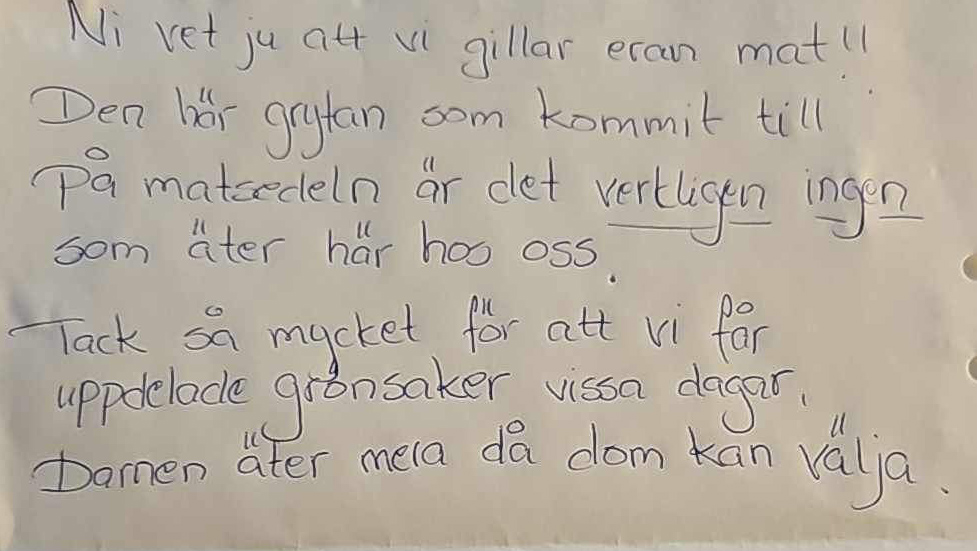 Ni vet ju att vi gillar eran mat!!
Den här grytan som kommit till
På matsedeln är det verkligen ingen
som äter här hos oss.
Tack så mycket för att vi får
uppdelade grönsaker vissa dagar.
Barnen äter mera då dom kan välja.